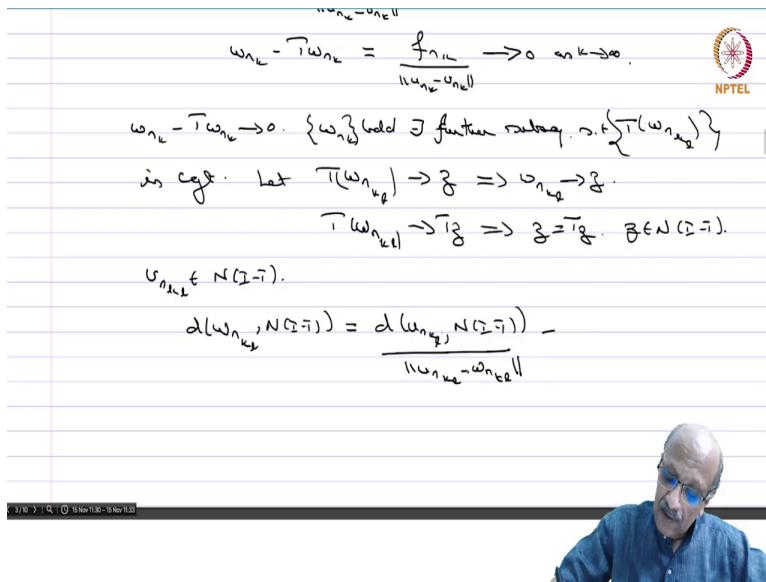 ||u_{n_k} - v_{n_k}||
w_{n_k} - Tw_{n_k} = f_{n_k} / ||u_{n_k} - v_{n_k}|| → 0 as k→∞.
NPTEL
w_{n_k} - Tw_{n_k} → 0. {w_{n_k}} bdd ∃ further subseq. s.t {T(w_{n_{k_l}})}
is cgt. Let T(w_{n_{k_l}}) → z => w_{n_{k_l}} → z.
T(w_{n_{k_l}}) → Tz => z = Tz. z ∈ N(I-T).
v_{n_{k_l}} ∈ N(I-T).
d(w_{n_{k_l}}, N(I-T)) = d(u_{n_{k_l}}, N(I-T)) / ||u_{n_{k_l}} - w_{n_{k_l}}|| -
3/10 15 Nov 11:30 - 15 Nov 11:33